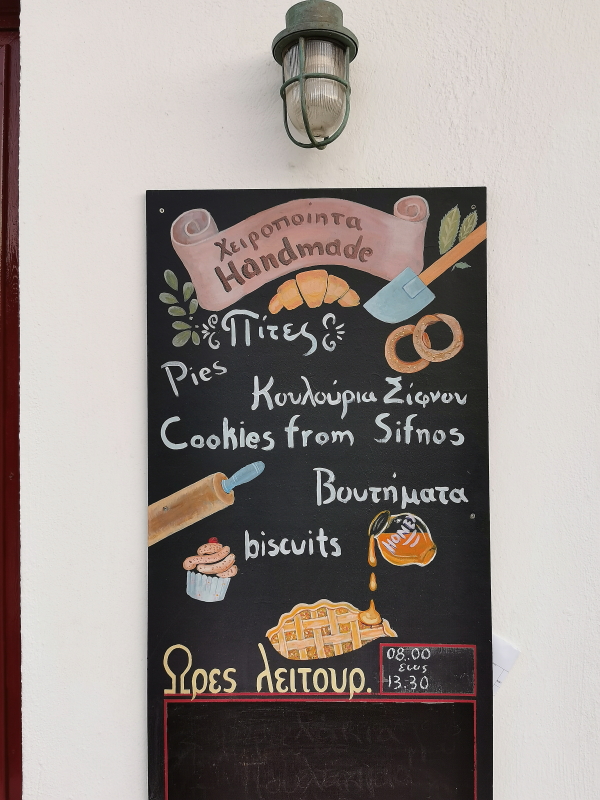 Χειροποίητα
Handmade
Πίτες
Pies
Κουλούρια Σίφνου
Cookies from Sifnos
Βουτήματα
biscuits
HONEY
Ωρες λειτουρ.
08.00
εως
13.30